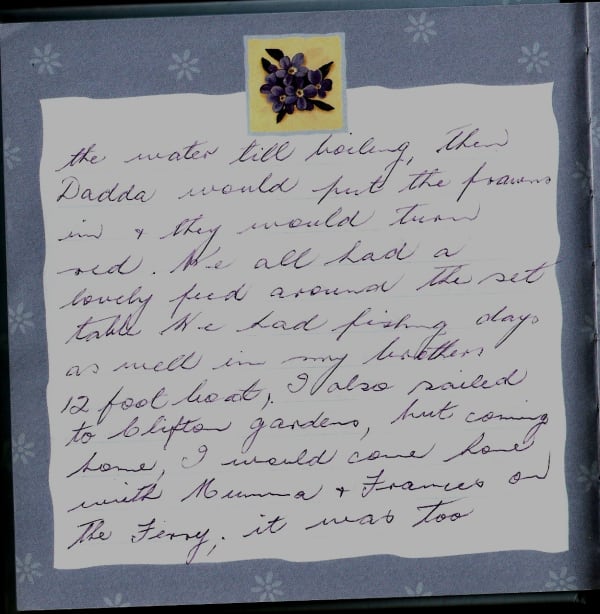 the water till boiling, then
Dadda would put the prawns
in & they would turn
red. We all had a
lovely feed around the set
table We had fishing days
as well in my brothers
12 foot boat, I also sailed
to Clifton gardens, but coming
home, I would come home
with Mumma & Frances on
the Ferry, it was too